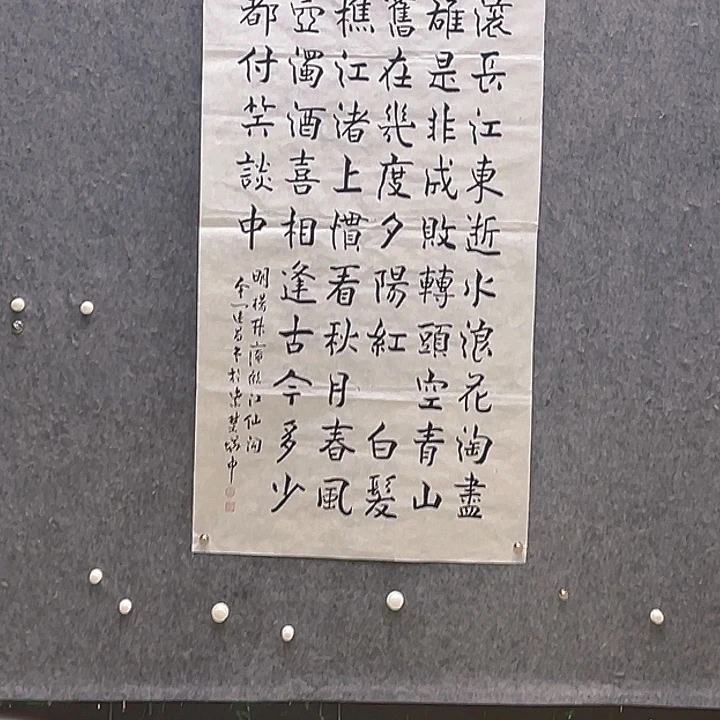 滚長江東逝水浪花淘盡
雄是非成敗轉頭空青山
舊在幾度夕陽紅 白髮
樵江渚上慣看秋月春風
壺濁酒喜相逢古今多少
都付笑談中
明楊江仙
中